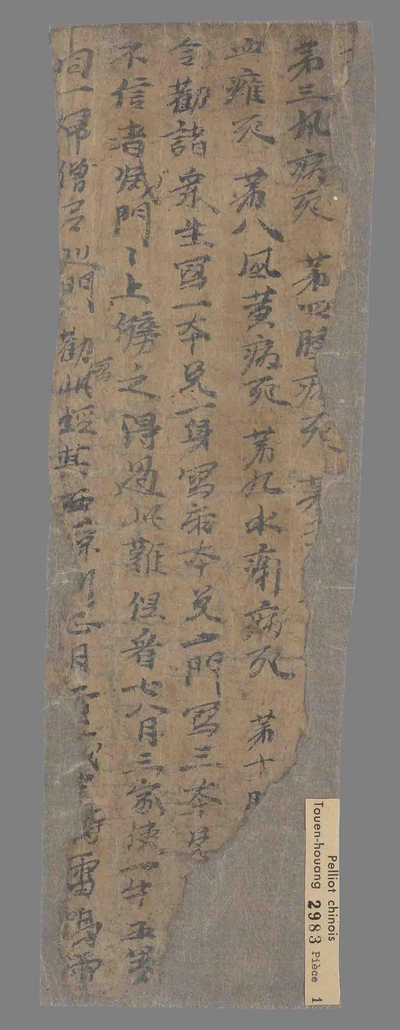 苐三札病死 苐四腫病死 苐
血癰死 苐八風黃病死 苐九水痢病死 苐十
今勸諸衆生寫一本免一身寫兩本免一門寫三本免
不信者滅門〻上牓之得過此難但看七八月三家使一牛五男
同一婦僧尼巡門勸寫此經其西涼州正月二 時雷鳴雨
Pelliot chinois
Touen-houang 2983 Pièce 1